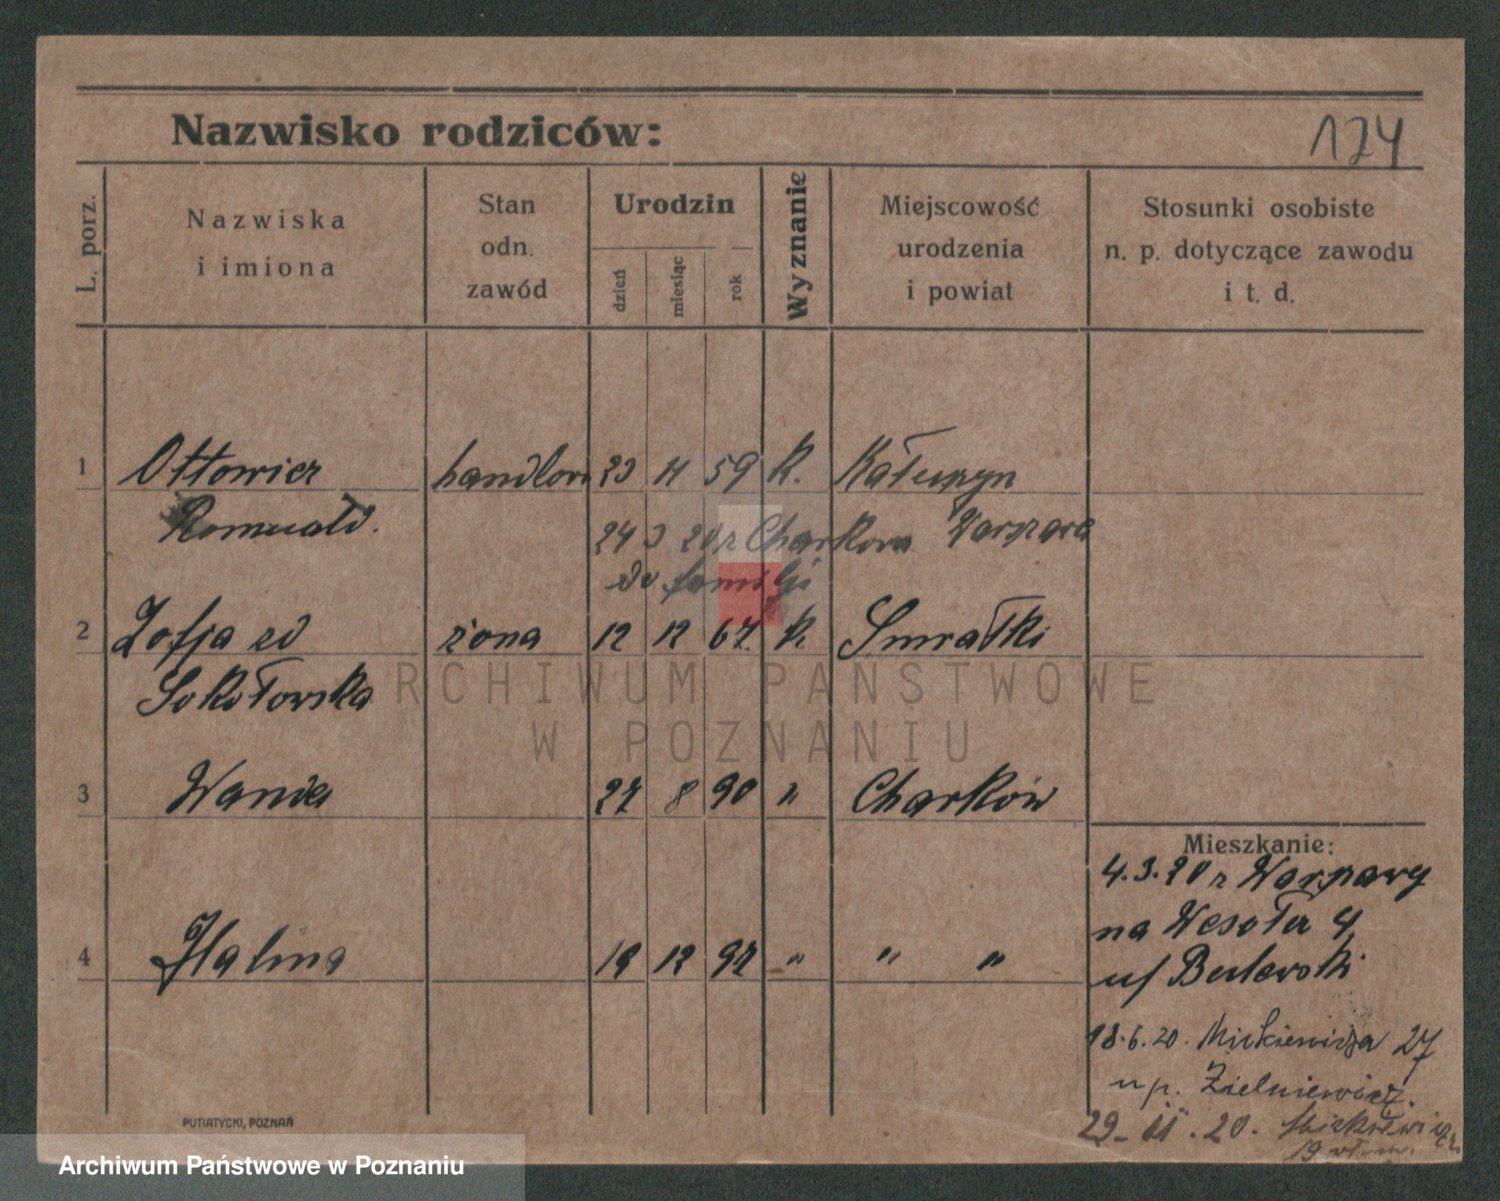 Nazwisko rodziców:
174
L. porz.
Nazwiska
i imiona
Stan
odn.
zawód
Urodzin
dzień
miesiąc
rok
Wyznanie
Miejscowość
urodzenia
i powiat
Stosunki osobiste
n. p. dotyczące zawodu
i t. d.
1 Ottowicz handlow 23 11 59 K. Kałuszyn
Romuald. Warszawa
24 3 20 z Charkowa
do familji
2 Zofja zd żona 12 12 67 k.
Sokołowska
3 Wanda 27 8 90 " Charków
4 Halina 19 12 97 " " "
Mieszkanie:
4.3.20 z Warszawy
na Wesoła 4
u/
18.6.20. Mickiewicza 27
u p. Zielniewicz.
29-11.20. Mickiewicza
19
PUTIATYCKI, POZNAŃ
ARCHIWUM PAŃSTWOWE
W POZNANIU
Archiwum Państwowe w Poznaniu